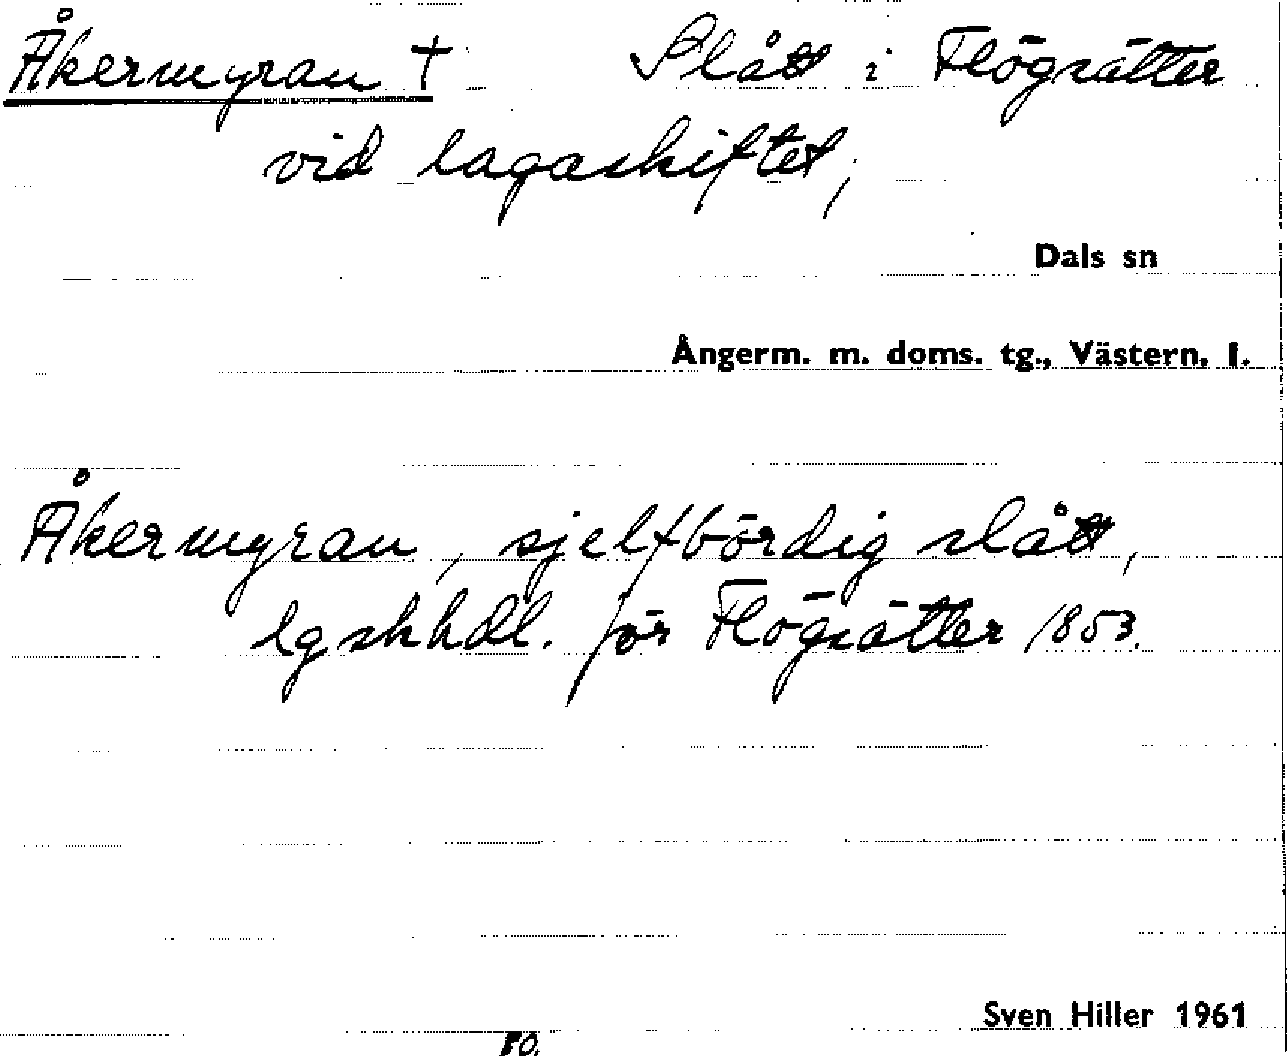 Åkermyran † Slått i Flögsätter
vid lagaskiftet,
Dals sn
Ångerm. m. doms. tg., Västern. l.
Åkermyran, sjelfbördig slått,
lgskhdl. för Flögsätter 1853.
Sven Hiller 1961